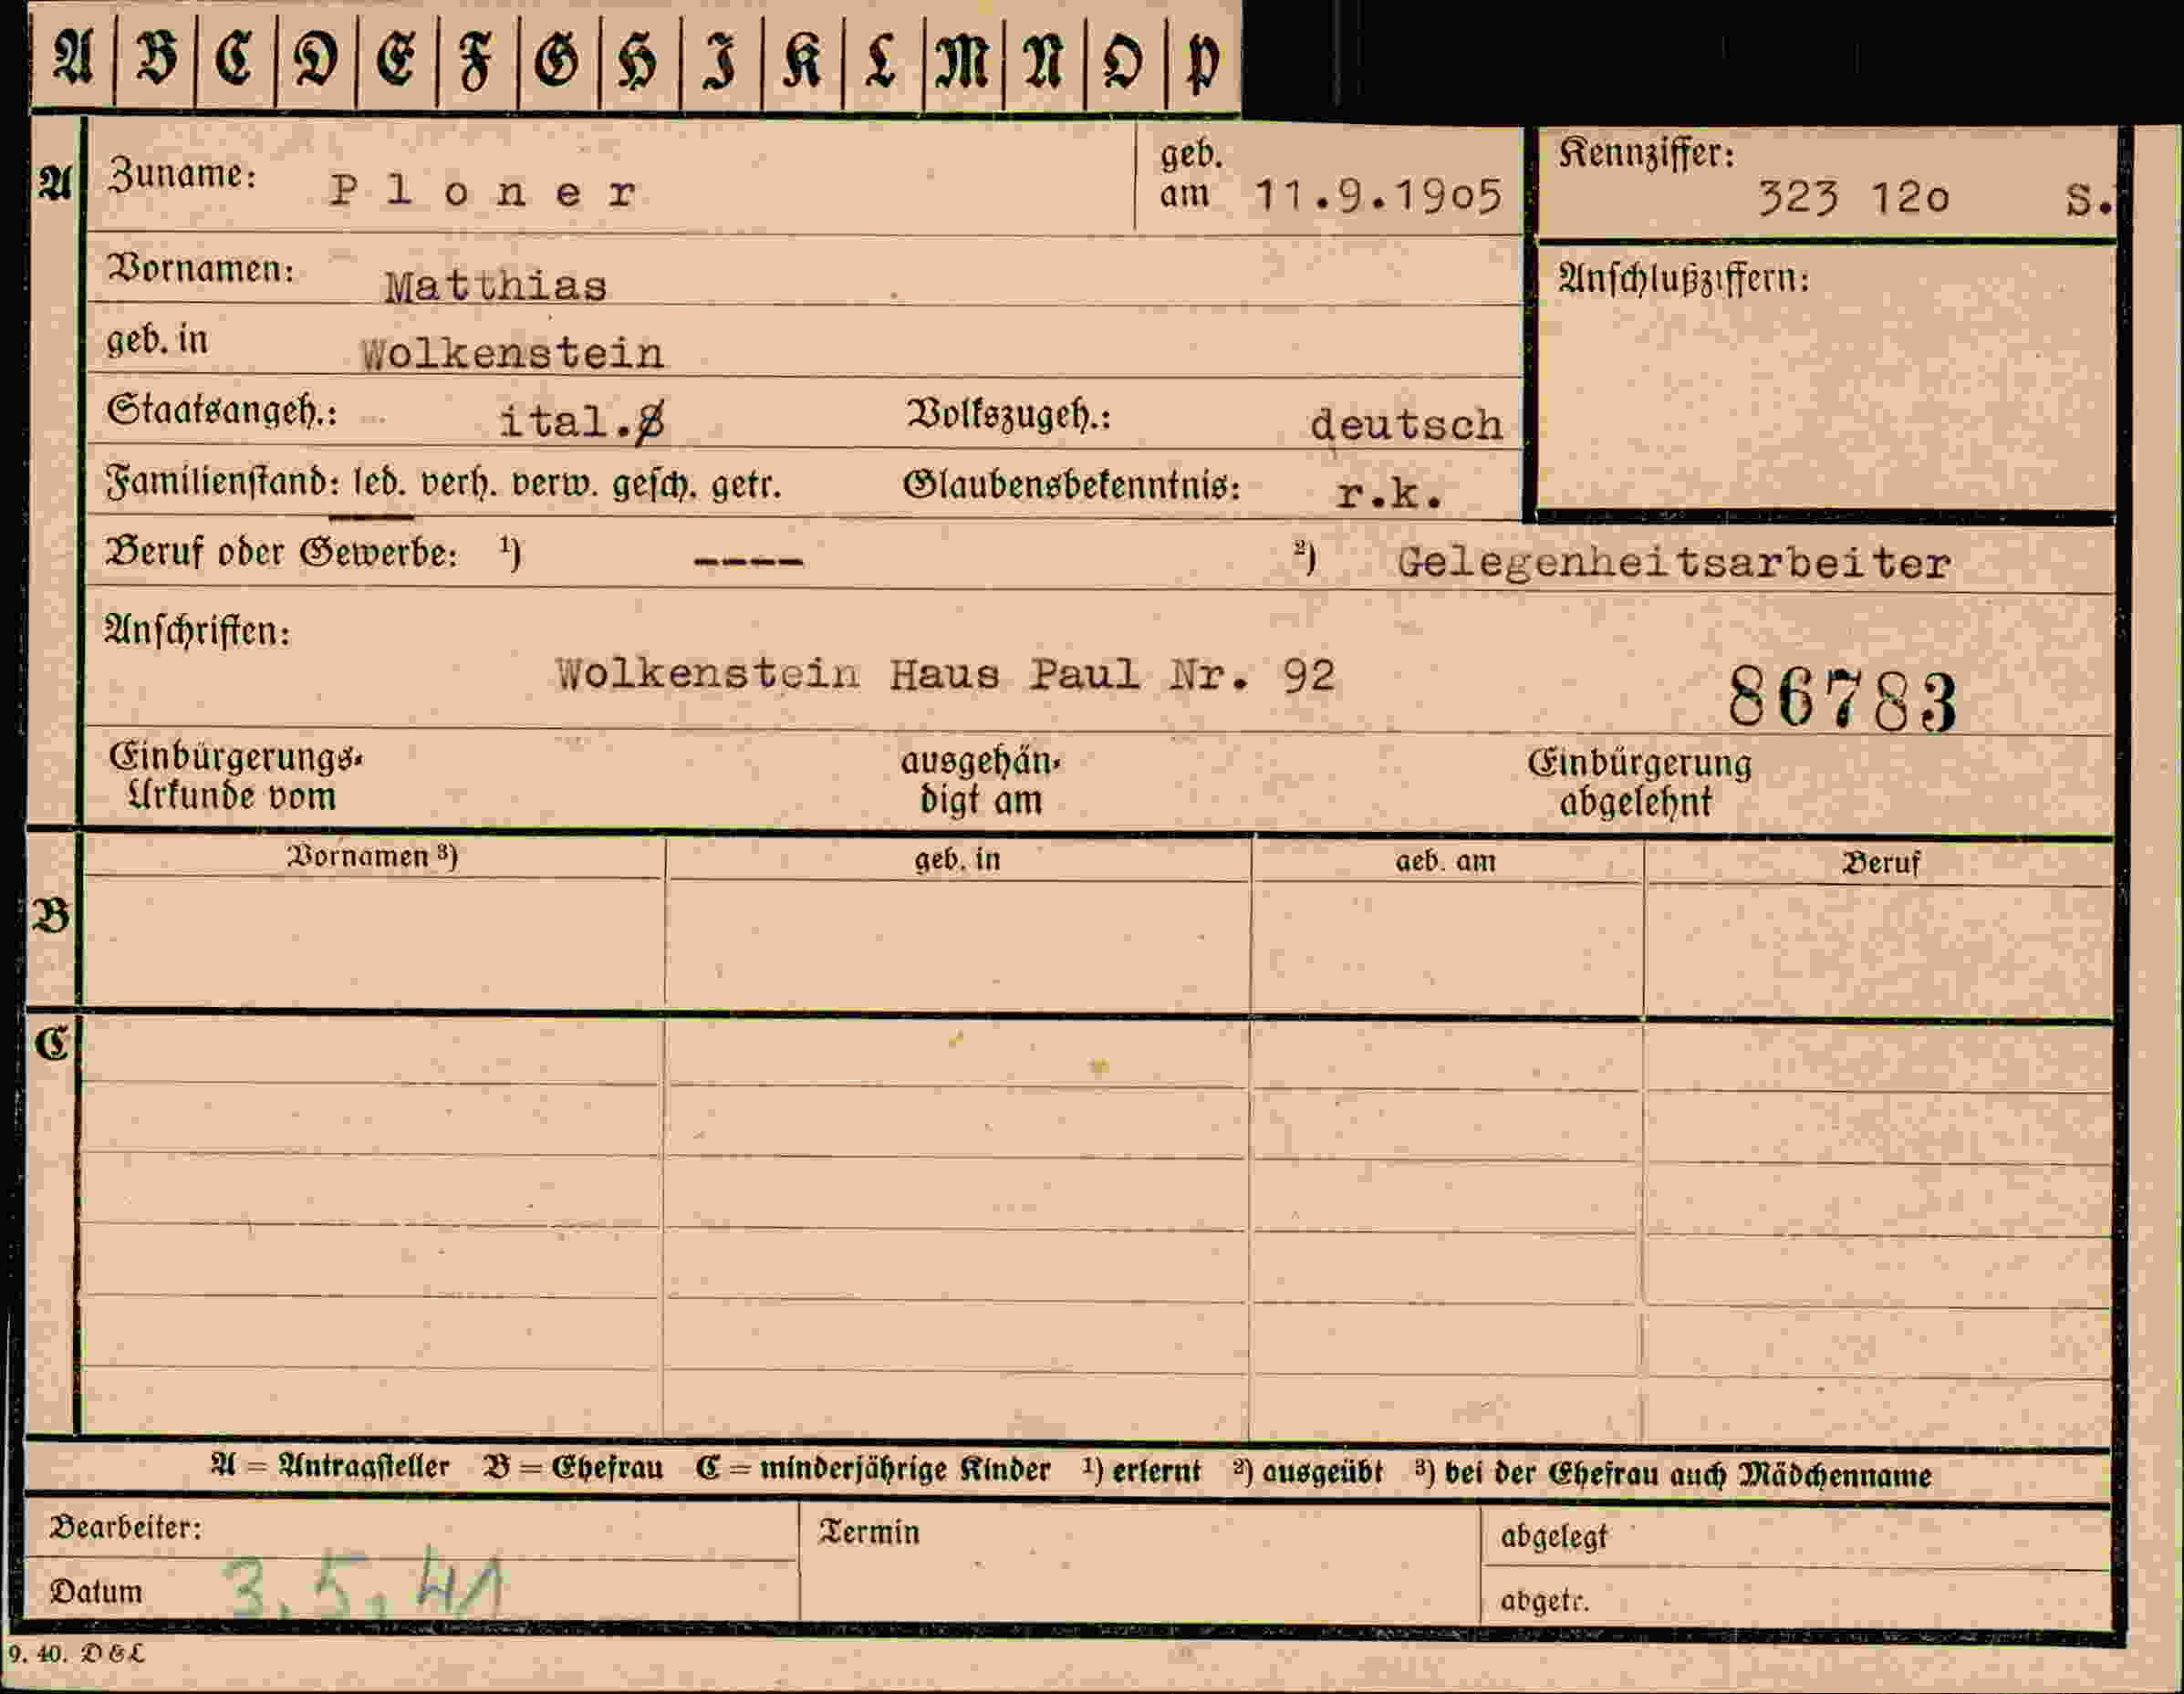 A B C D E F G H I K L M N O P
A Zuname: Ploner geb. am 11.9.1905 Kennziffer: 323 120 S.
Vornamen: Matthias Anschlußziffern:
geb. in Wolkenstein
Staatsangeh.: ital. Volkszugeh.: deutsch
Familienstand: led. verh. verw. gesch. getr. Glaubensbekenntnis: r.k.
Beruf oder Gewerbe: ¹) ---- ²) Gelegenheitsarbeiter
Anschriften:
Wolkenstein Haus Paul Nr. 92 86783
Einbürgerungs- ausgehän- Einbürgerung
Urkunde vom digt am abgelehnt
Vornamen ³) geb. in geb. am Beruf
B
C
A = Antragsteller B = Ehefrau C = minderjährige Kinder ¹) erlernt ²) ausgeübt ³) bei der Ehefrau auch Mädchenname
Bearbeiter: Termin abgelegt
Datum 3.5.41 abgetr.
9. 40. D&L